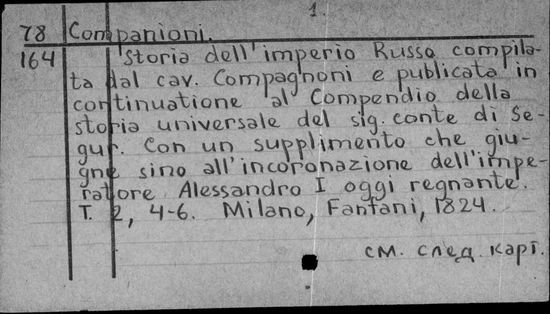 1.
78 Companioni.
164 Storia dell'imperio Russo compila-
ta dal cav. Compagnoni e publicata in
continuatione al Compendio della
storia universale del sig. conte di Se-
gur. Con un supplimento che giu-
gne sino all'incoronazione dell'impe-
ratore Alessandro I oggi regnante.
T. 2, 4-6. Milano, Fantani, 1824.
см. след. карт.